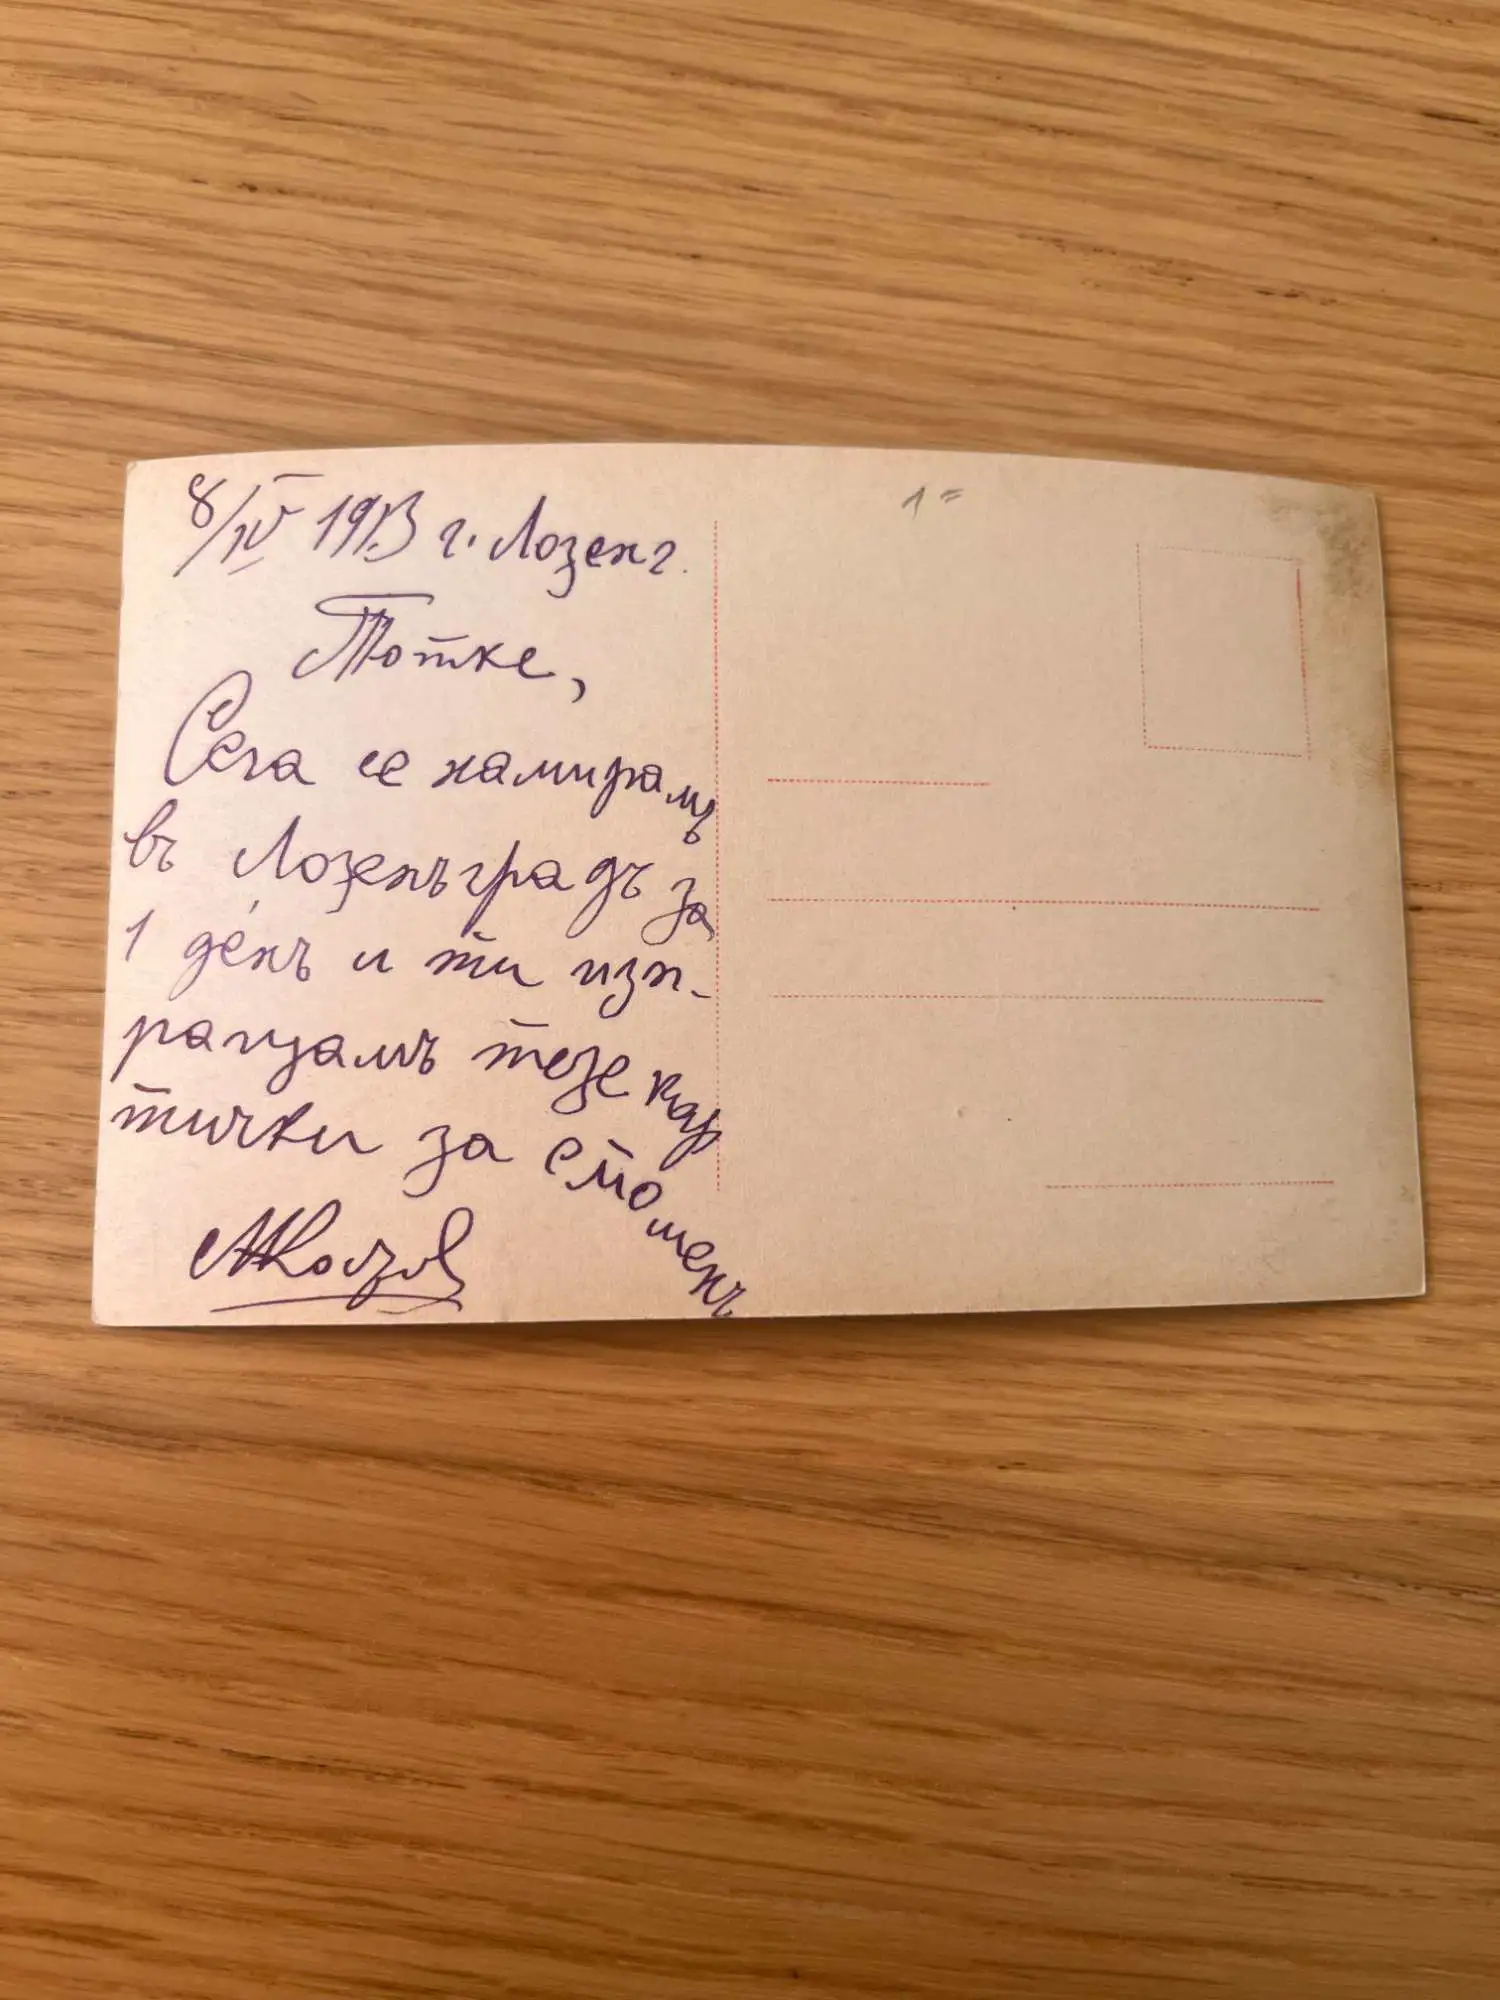 8/IV 1913 г. Лозенг.
Тотке,
Сега се намирамъ
въ Лозенъградъ за
1 день и ти изп-
ращамъ тезе кар
тички за споменъ
1=